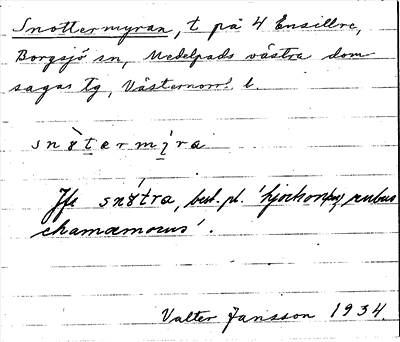 Snottermyran, t på 4 Ensillre,
Borgsjö sn, Medelpads västra dom
sagas tg, Västernorrl. l.
snòtermỳra
Jfr snɤ́tra, best. pl. 'hjortron, rubus
chamæmorus'.
Valter Jansson 1934.